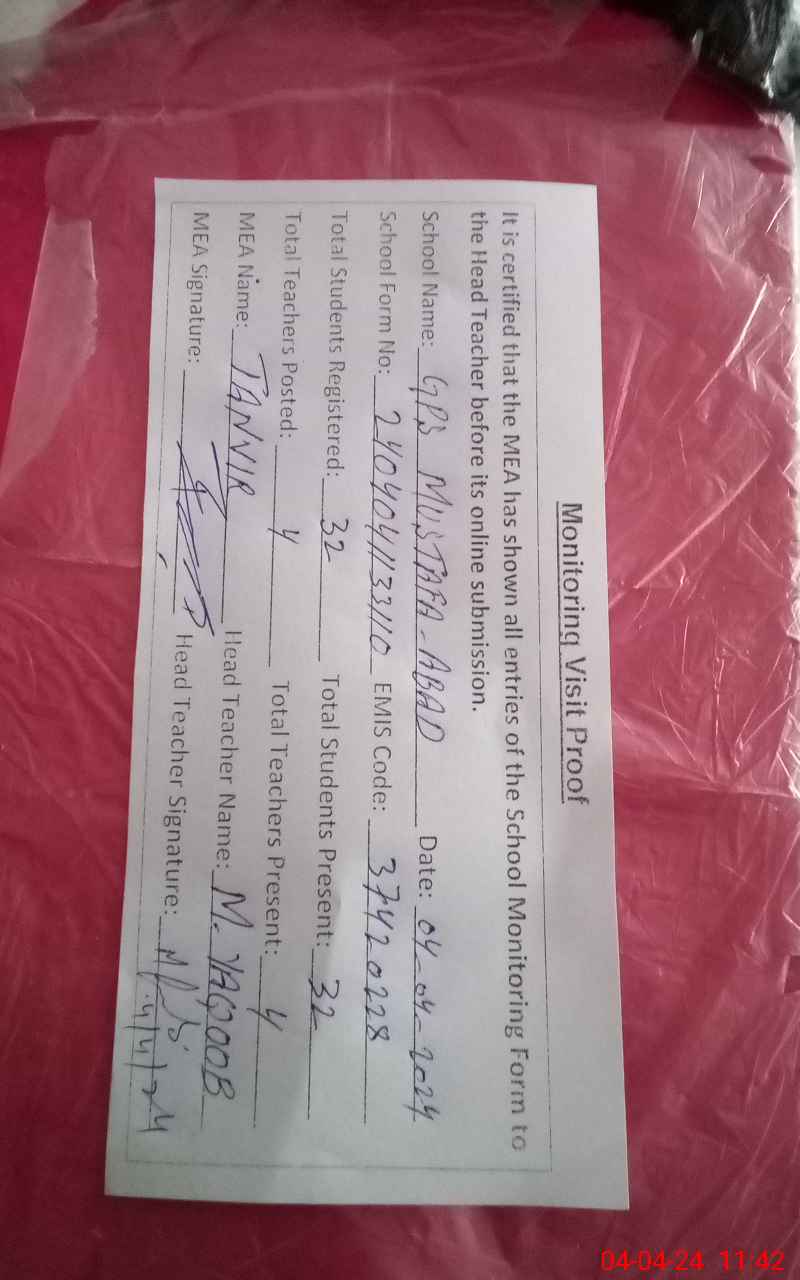 Monitoring Visit Proof
It is certified that the MEA has shown all entries of the School Monitoring Form to
the Head Teacher before its online submission.
School Name: GPS MUSTAFA-ABAD Date: 04-04-2024
School Form No: 2404041133110 EMIS Code: 37420228
Total Students Registered: 32 Total Students Present: 32
Total Teachers Posted: 4 Total Teachers Present: 4
MEA Name: TANVIR Head Teacher Name: M. YAQOOB
MEA Signature: Head Teacher Signature:
4/4/24
04-04-24 11:42